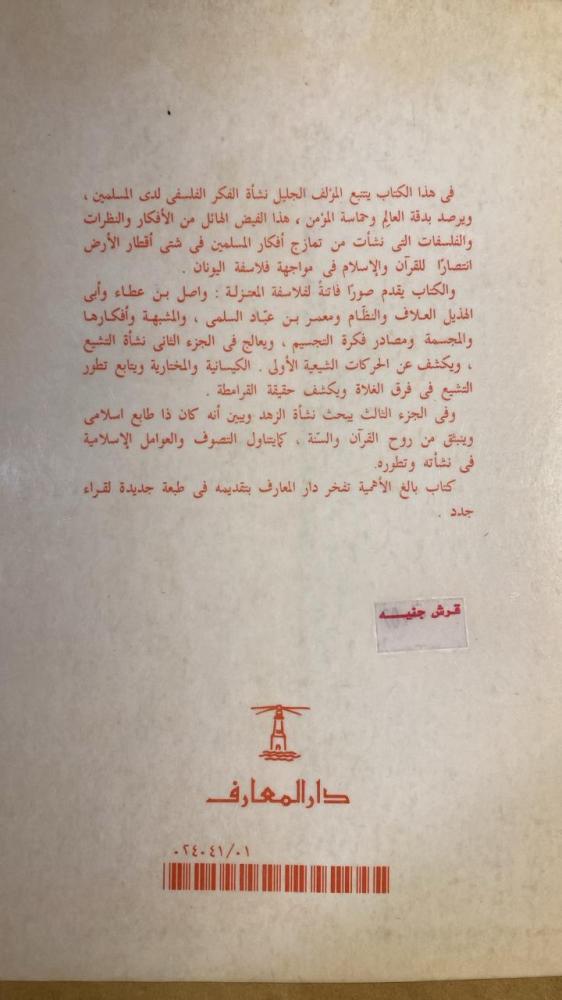 فى هذا الكتاب يتتبع المؤلف الجليل نشأة الفكر الفلسفى لدى المسلمين ،
ويرصد بدقة العالِم وحماسة المؤمن ، هذا الفيض الهائل من الأفكار والنظرات
والفلسفات التى نشأت من تمازج أفكار المسلمين فى شتى أقطار الأرض
انتصارًا للقرآن والإسلام فى مواجهة فلاسفة اليونان .
والكتاب يقدم صورًا فاتنةً لفلاسفة المعتزلة : واصل بن عطاء وأبى
الهذيل العلاف والنظَّام ومعمر بن عبَّاد السلمى ، والمشبهة وأفكارها
والمجسمة ومصادر فكرة التجسيم ، ويعالج فى الجزء الثانى نشأة التشيع
، ويكشف عن الحركات الشيعية الأولى . الكيسانية والمختارية ويتابع تطور
التشيع فى فرق الغلاة ويكشف حقيقة القرامطة .
وفى الجزء الثالث يبحث نشأة الزهد ويبين أنه كان ذا طابع اسلامى
وينبثق من روح القرآن والسنّة ، كمايتناول التصوف والعوامل الإسلامية
فى نشأته وتطوره.
كتاب بالغ الأهمية تفخر دار المعارف بتقديمه فى طبعة جديدة لقراء
جدد .
قرش جنيـــه
دار المعارف
٠٢٤٠٤١/٠١